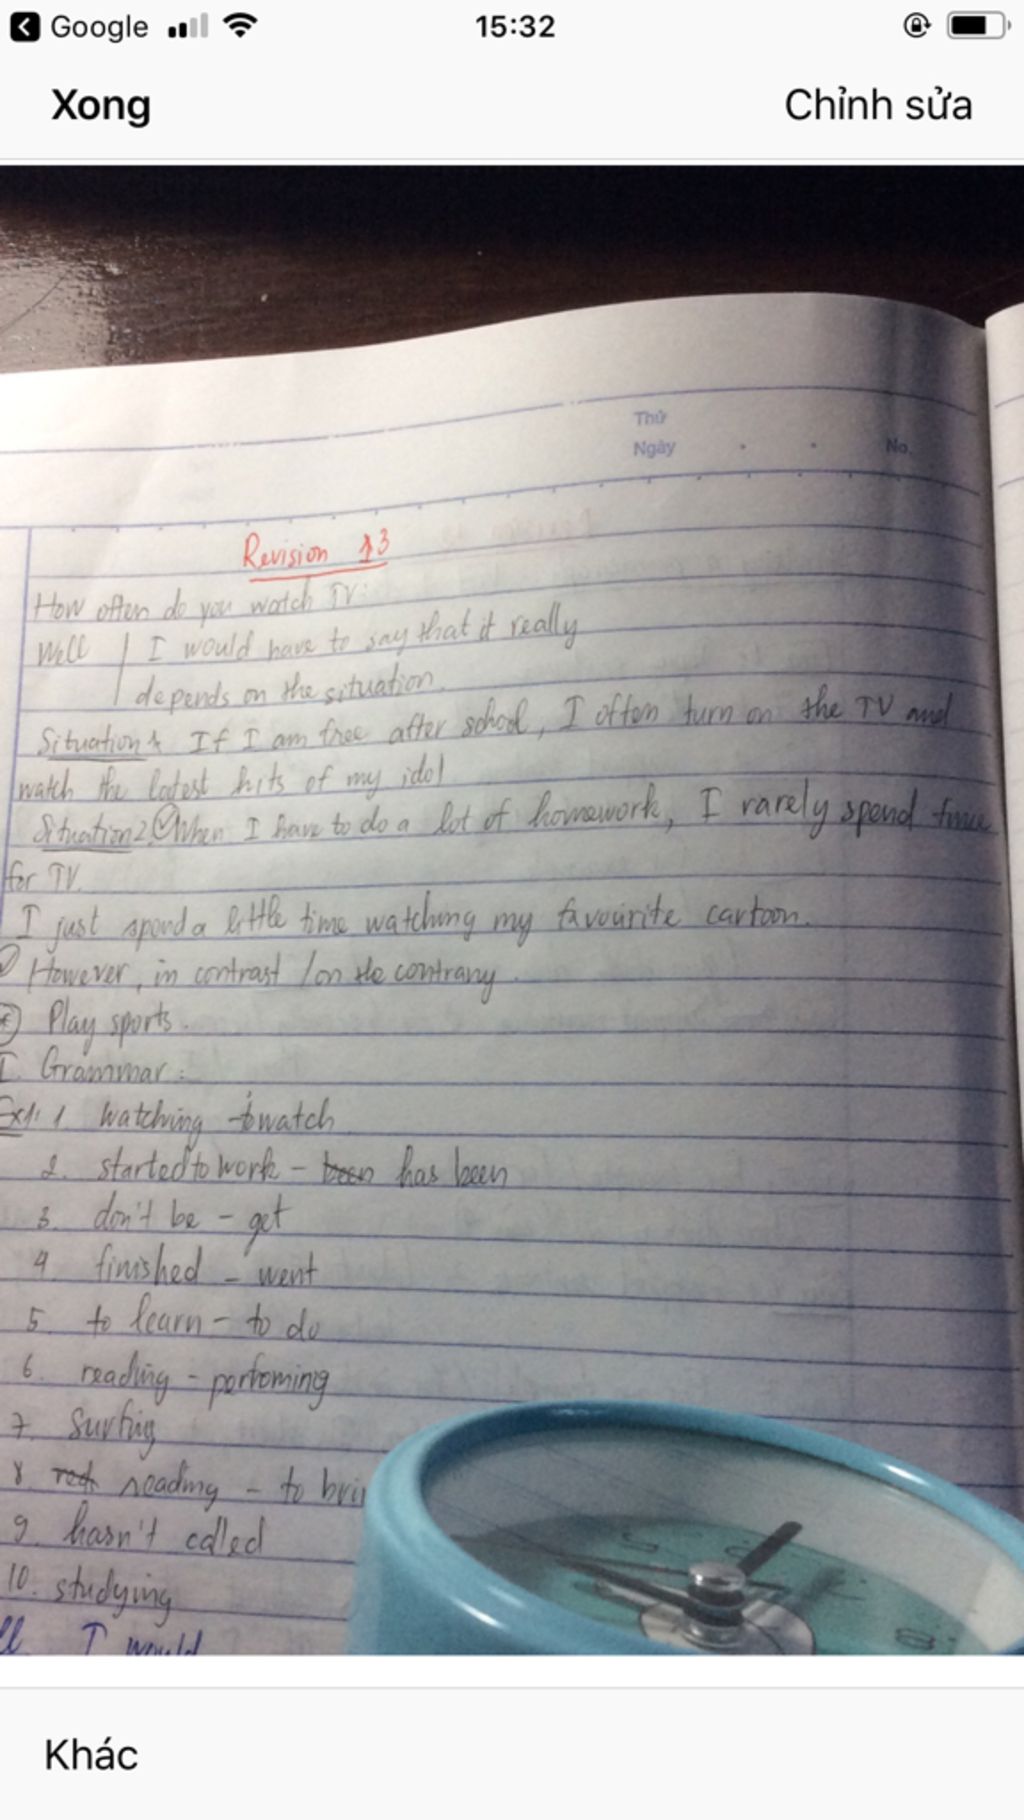 Google
15:32
Xong
Chỉnh sửa
Thứ
Ngày
No.
Revision 13
How often do you watch TV:
Well I would have to say that it really
depends on the situation.
Situation 1 If I am free after school, I often turn on the TV and
watch the latest hits of my idol
Situation 2. When I have to do a lot of homework, I rarely spend time
for TV.
I just spend a little time watching my favourite cartoon.
However, in contrast / on the contrany.
Play sports.
I. Grammar:
Ex1: 1 watching - to watch
2. started to work - been has been
3. don't be - get
4. finished - went
5. to learn - to do
6. reading - perfoming
7. Surfing
8. reading - to bri
9. hasn't called
10. studying
I would
Khác